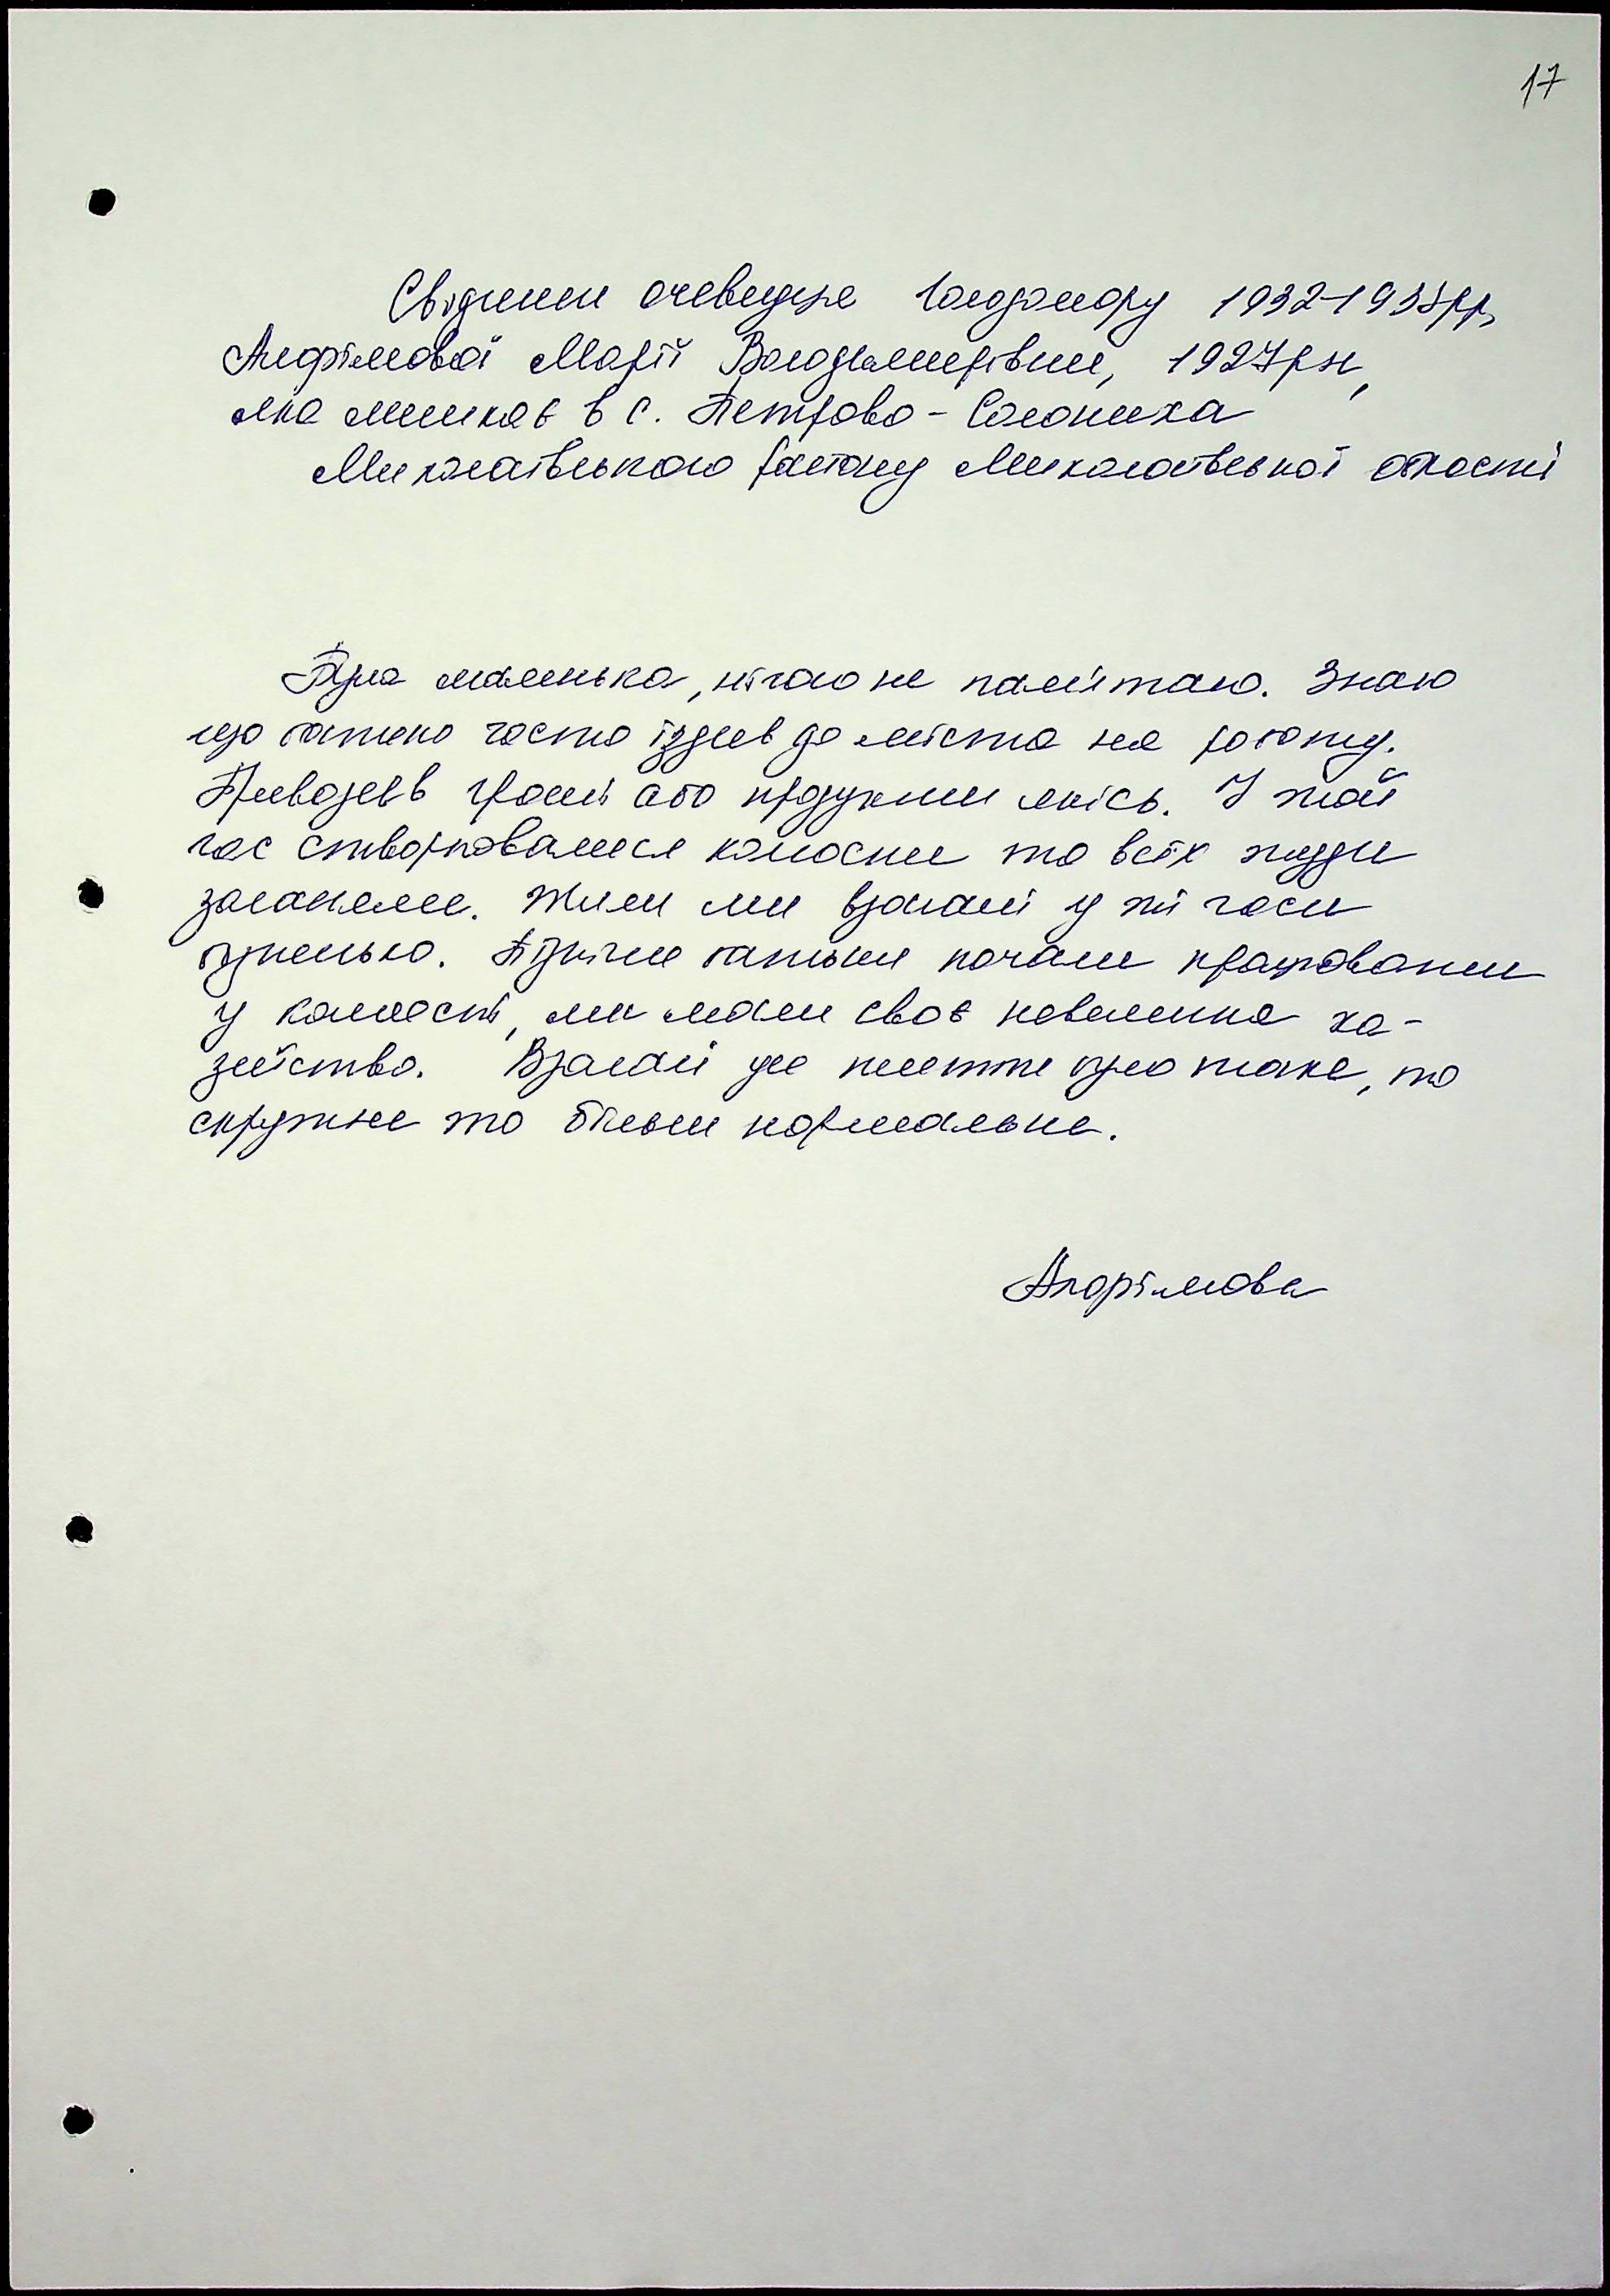 17
Свідчення очевидця Голодомору 1932-1933рр,
Марії Володимирівни, 1927рн,
яка мешкає в с. Петрово - Солониха
Миколаївського району Миколаївської області
Була маленька, нічого не памятаю. Знаю
що батько часто їздив до міста на роботу.
Привозив гроші або продукти якісь. У той
час створювалися колоспи то всіх туди
заганяли. Жили ми взагалі у ті часи
бідненько. Пізніше батьки почали працювати
у колоспі, ми мали своє невелике ха-
зяйство. Взагалі це життя було таке, то
скрутне то більш нормальне.